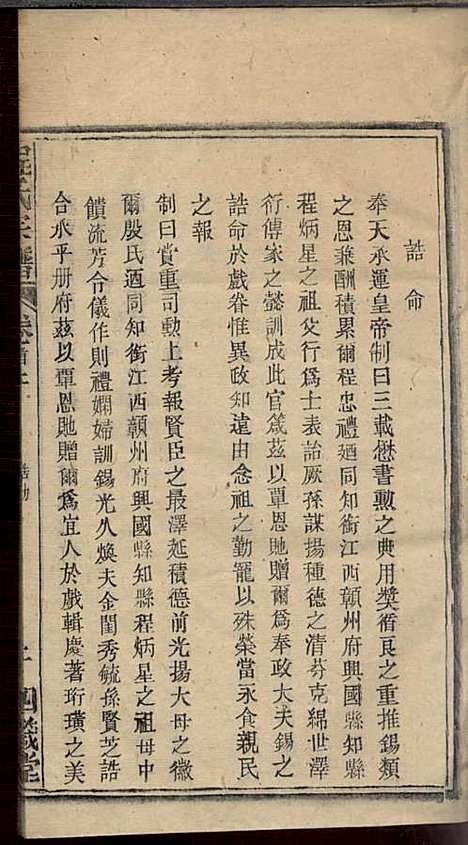 誥命
奉天承運皇帝制曰三載懋書勲之典用奬循良之重推錫類
之恩兼酬積累爾程忠禮廼同知銜江西贛州府興國縣知縣
程炳星之祖父行爲士表詒厥孫謀揚種德之清芬克綿世澤
衍傳家之懿訓成此官箴茲以覃恩貤贈爾爲奉政大夫錫之
誥命於戲眷惟異政知遠由念祖之勤寵以殊榮當永食親民
之報
制曰賞重司勲上考報賢臣之最澤延積德前光揚大母之徽
爾殷氏廼同知銜江西贛州府興國縣知縣程炳星之祖母中
饋流芳令儀作則禮嫻婦訓錫光久煥夫金閨秀毓孫賢芝誥
合承平册府茲以覃恩貤贈爾爲宜人於戲輯慶著珩璜之美
程氏宗譜
卷首上
誥勅